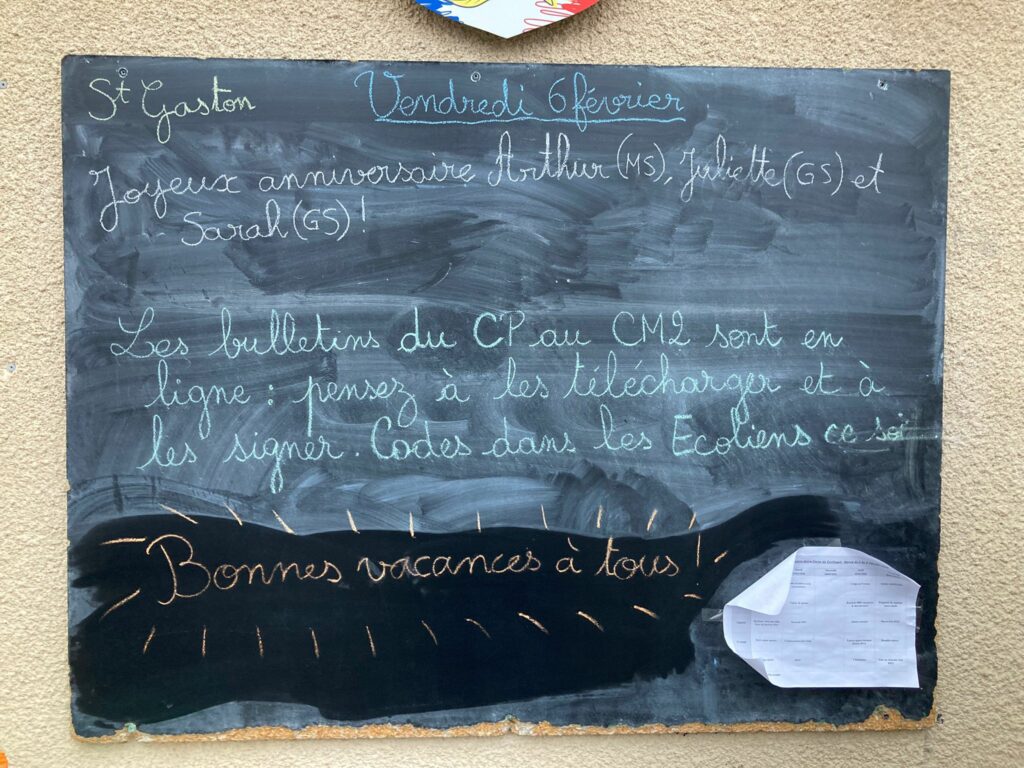 St Gaston
Vendredi 6 février
Joyeux anniversaire Arthur (MS), Juliette (GS) et
Sarah (GS) !
Les bulletins du CP au CM2 sont en
ligne : pensez à les télécharger et à
les signer. Codes dans les Ecoliens ce soir
Bonnes vacances à tous !